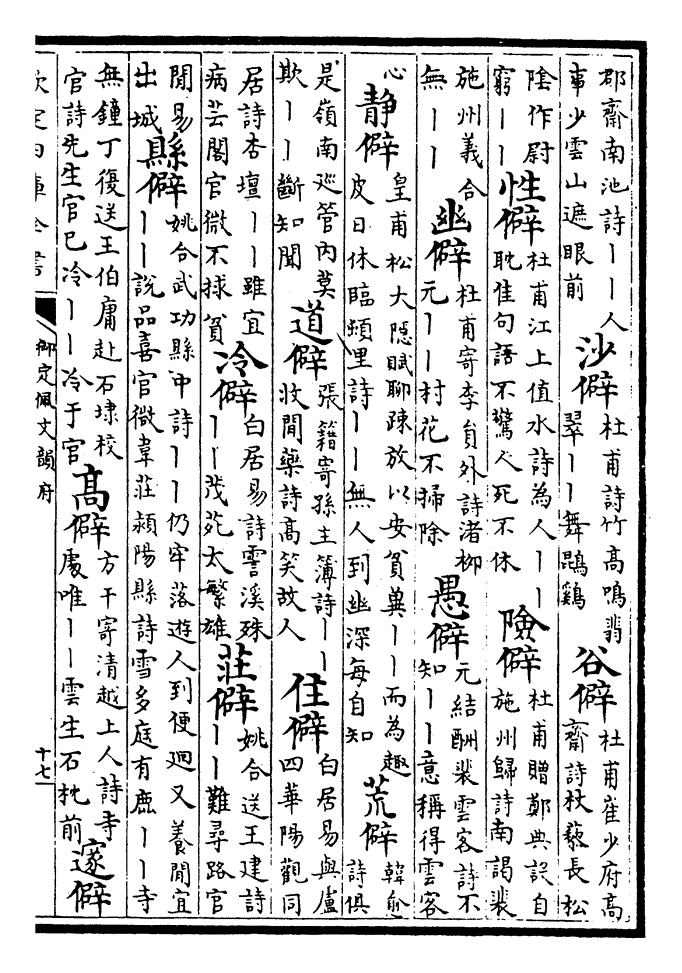 郡齋南池詩丨丨人
事少雲山遮眼前
沙僻
杜甫詩竹髙鳴翡
翠丨丨舞鵾鷄
谷僻
杜甫崔少府髙
齋詩杖藜長松
陰作尉
窮丨丨
性僻
杜甫江上值水詩為人丨丨
耽佳句語不驚人死不休
險僻
杜甫贈鄭典設自
施州歸詩南謁裴
施州義合
無丨丨
幽僻
杜甫寄李員外詩渚柳
元丨丨村花不掃除
愚僻
元結酬裴雲客詩不
知丨丨意稱得雲客
心
靜僻
皇甫松大隱賦聊踈放以安貧兾丨丨而為趣
皮日休臨頓里詩丨丨無人到幽深每自知
荒僻
韓愈
詩俱
是嶺南廵管内莫
欺丨丨斷知聞
道僻
張籍寄孫主簿詩丨丨
收閒藥詩髙笑故人
住僻
白居易與盧
四華陽觀同
居詩杏壇丨丨雖宜
病芸閣官微不捄貧
冷僻
白居易詩霅溪殊
丨丨茂苑太繁雄
莊僻
姚合送王建詩
丨丨難尋路官
閒易
出城
縣僻
姚合武功縣中詩丨丨仍牢落遊人到便迴又養閒宜
丨丨說品喜官微韋莊潁陽縣詩雪多庭有鹿丨丨寺
無鐘丁復送王伯庸赴石埭校
官詩先生官已冷丨丨冷于官
髙僻
方干寄清越上人詩寺
處唯丨丨雲生石枕前
邃僻
欽定四庫全書
御定佩文韻府
十七